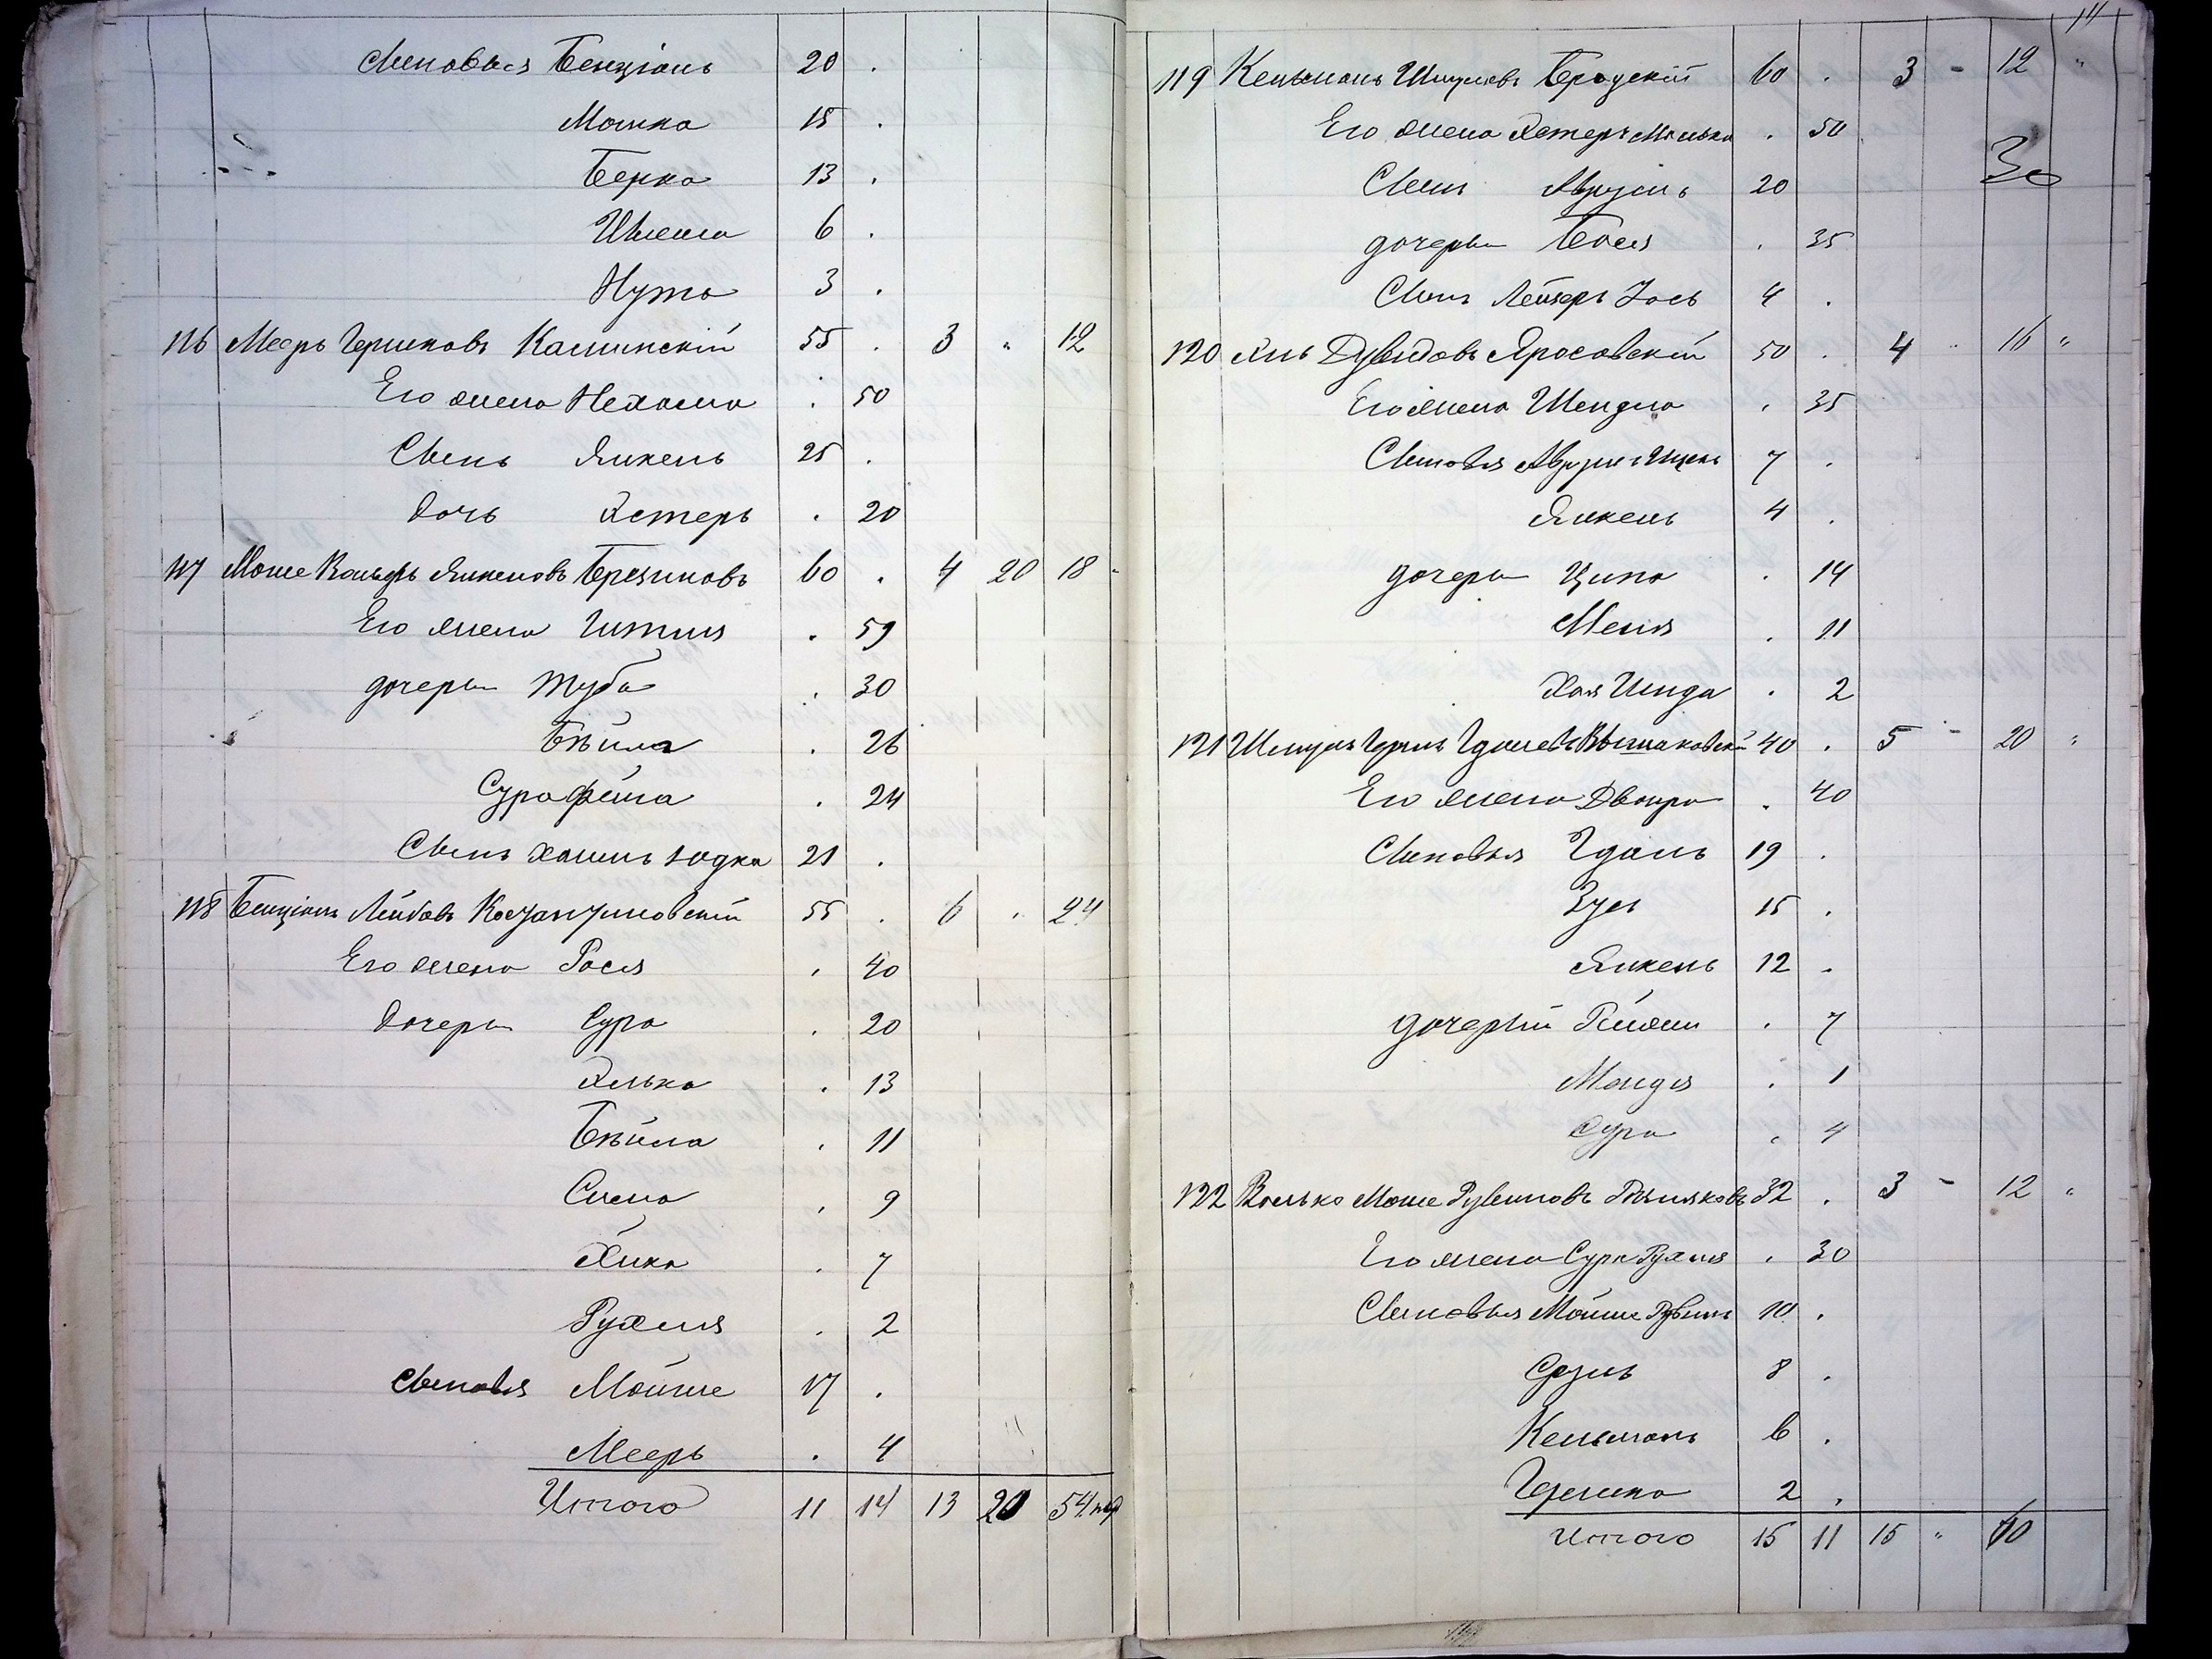 Сыновья Бенціонъ 20 .
Мошка 15 .
Берка 13 .
Шлема 6 .
Нута 3 .
116 Мееръ Гершковъ Каминскій 55 . 3 " 12
Его жена Нехама . 50
Сынъ Янкель 25 .
Дочь Хестеръ . 20
117 Моше Вольфъ Янкеловъ Березиковъ 60 . 4 20 18 -
Его жена Гитля . 59
дочери Туба . 30
Бѣйла . 26
Сурафейга . 24
Сынъ Хаимъ Юдка 21 .
118 Бенціонъ Лейбовъ Костантиновскій 55 . 6 . 24
Его жена Рося . 40
Дочери Сура . 20
Хлька . 13
Бѣйла . 11
Сима . 9
Хика . 7
Рухля . 2
Сыновья Мойше 17 .
Мееръ . 4
Итого 11 14 13 20 54 кар
119 Кельманъ Шмулевъ Бродскій 60 . 3 - 12 "
Его жена Хестеръ Малька . 50
30
Сынъ Аврумъ 20
дочери Бася . 35
Сынъ Лейзеръ Іось 4 .
120 Янъ Дувидовъ Яросовскій 50 . 4 . 16 "
Его жена Шендла . 35
Сыновья Аврумъ Ицекъ 7 .
Янкель 4 .
дочери Ципа . 14
Меня . 11
Хая Шинда . 2
121 Шмуль Гершъ Гдалевъ Вышаковскій 40 . 5 - 20 "
Его жена Двойра . 40
Сыновья Гдаль 19 .
Зусь 15 .
Янкель 12 .
дочерьй Рейзи . 7
Мандя . 1
Сура . 4
122 Волько Моше Рувиновъ 32 . 3 - 12 "
Его жена Сура Рухля . 30
Сыновья Мойше Рувинъ 10 .
Срулъ 8 .
Кельманъ 6 .
Гершка 2 .
Итого 15 11 15 " 60